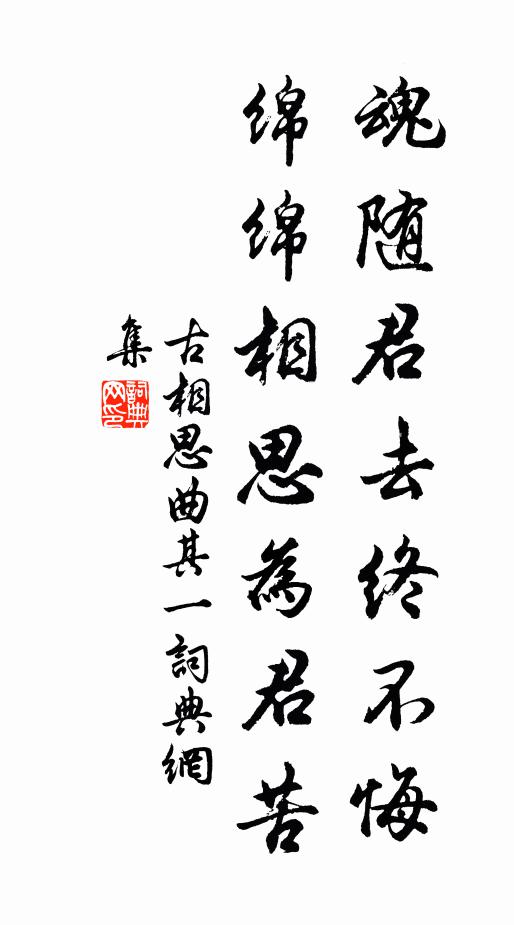 魂随君去终不悔
绵绵相思為君苦
古相思曲其一詞典網
集
詞典
网印